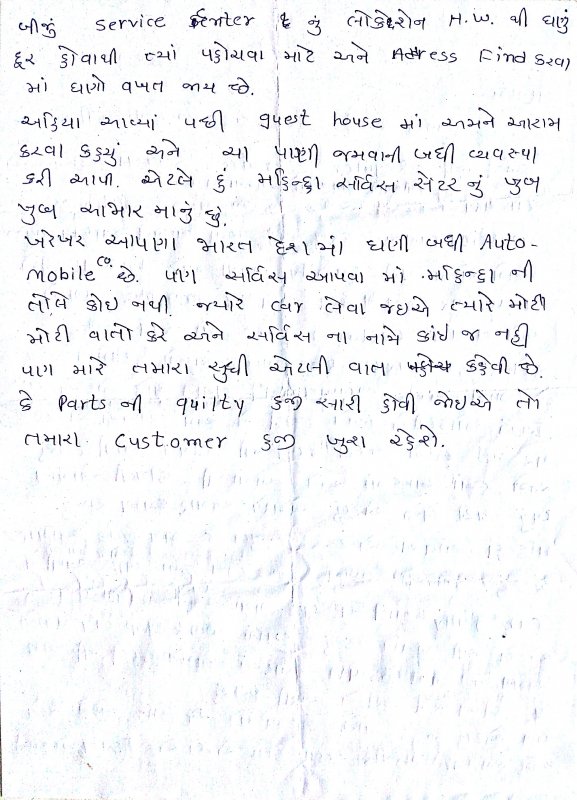 બીજું service center નું લોકેશન H.W. થી ઘણું
દૂર હોવાથી ત્યાં પહોચવા માટે અને Address Find કરવા
માં ઘણો વખત જાય છે.
અહિયા આવ્યાં પછી guest house માં અમને આરામ
કરવા કહ્યું અને ચા પાણી જમવાની બધી વ્યવસ્થા
કરી આપી. એટલે હું મહિન્દ્રા સર્વિસ સેંટર નું ખુબ
ખુબ આભાર માનું છું.
ખરેખર આપણા ભારત દેશ માં ઘણી બધી Auto-
mobile co. છે. પણ સર્વિસ આપવા માં મહિન્દ્રા ની
તોલે કોઇ નથી. જ્યારે લેવા જઇએ ત્યારે મોટી
મોટી વાતો કરે અને સર્વિસ ના નામે કાંઇ જ નહી
પણ મારે તમારા સુધી એટલી વાત કહેવી છે.
કે Parts ની quilty હજી સારી હોવી જોઇએ તો
તમારા customer હજી ખુશ રહેશે.